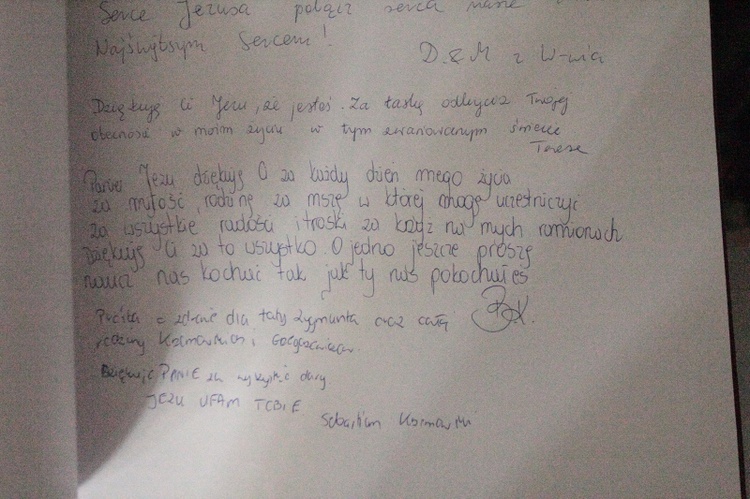 Serce Jezusa połącz serca nasze
Najświętszym Sercem!
D. & M z W-wia
Dziękuję Ci Jezu, że jesteś. Za łaskę odkrycia Twojej
obecności w moim życiu w tym zwariowanym świecie
Teresa
Panie Jezu dziękuję Ci za każdy dzień mego życia
za miłość, rodzinę za mszę w której mogę uczestniczyć
za wszystkie radości i troski za krzyż na mych ramionach
Dziękuję Ci za to wszystko. O jedno jeszcze proszę
naucz nas kochać tak jak ty nas pokochałeś
Prośba o zdrowie dla taty Zygmunta oraz całej
rodziny i
Dziękuję PANIE za dary
JEZU UFAM TOBIE
Sebastian